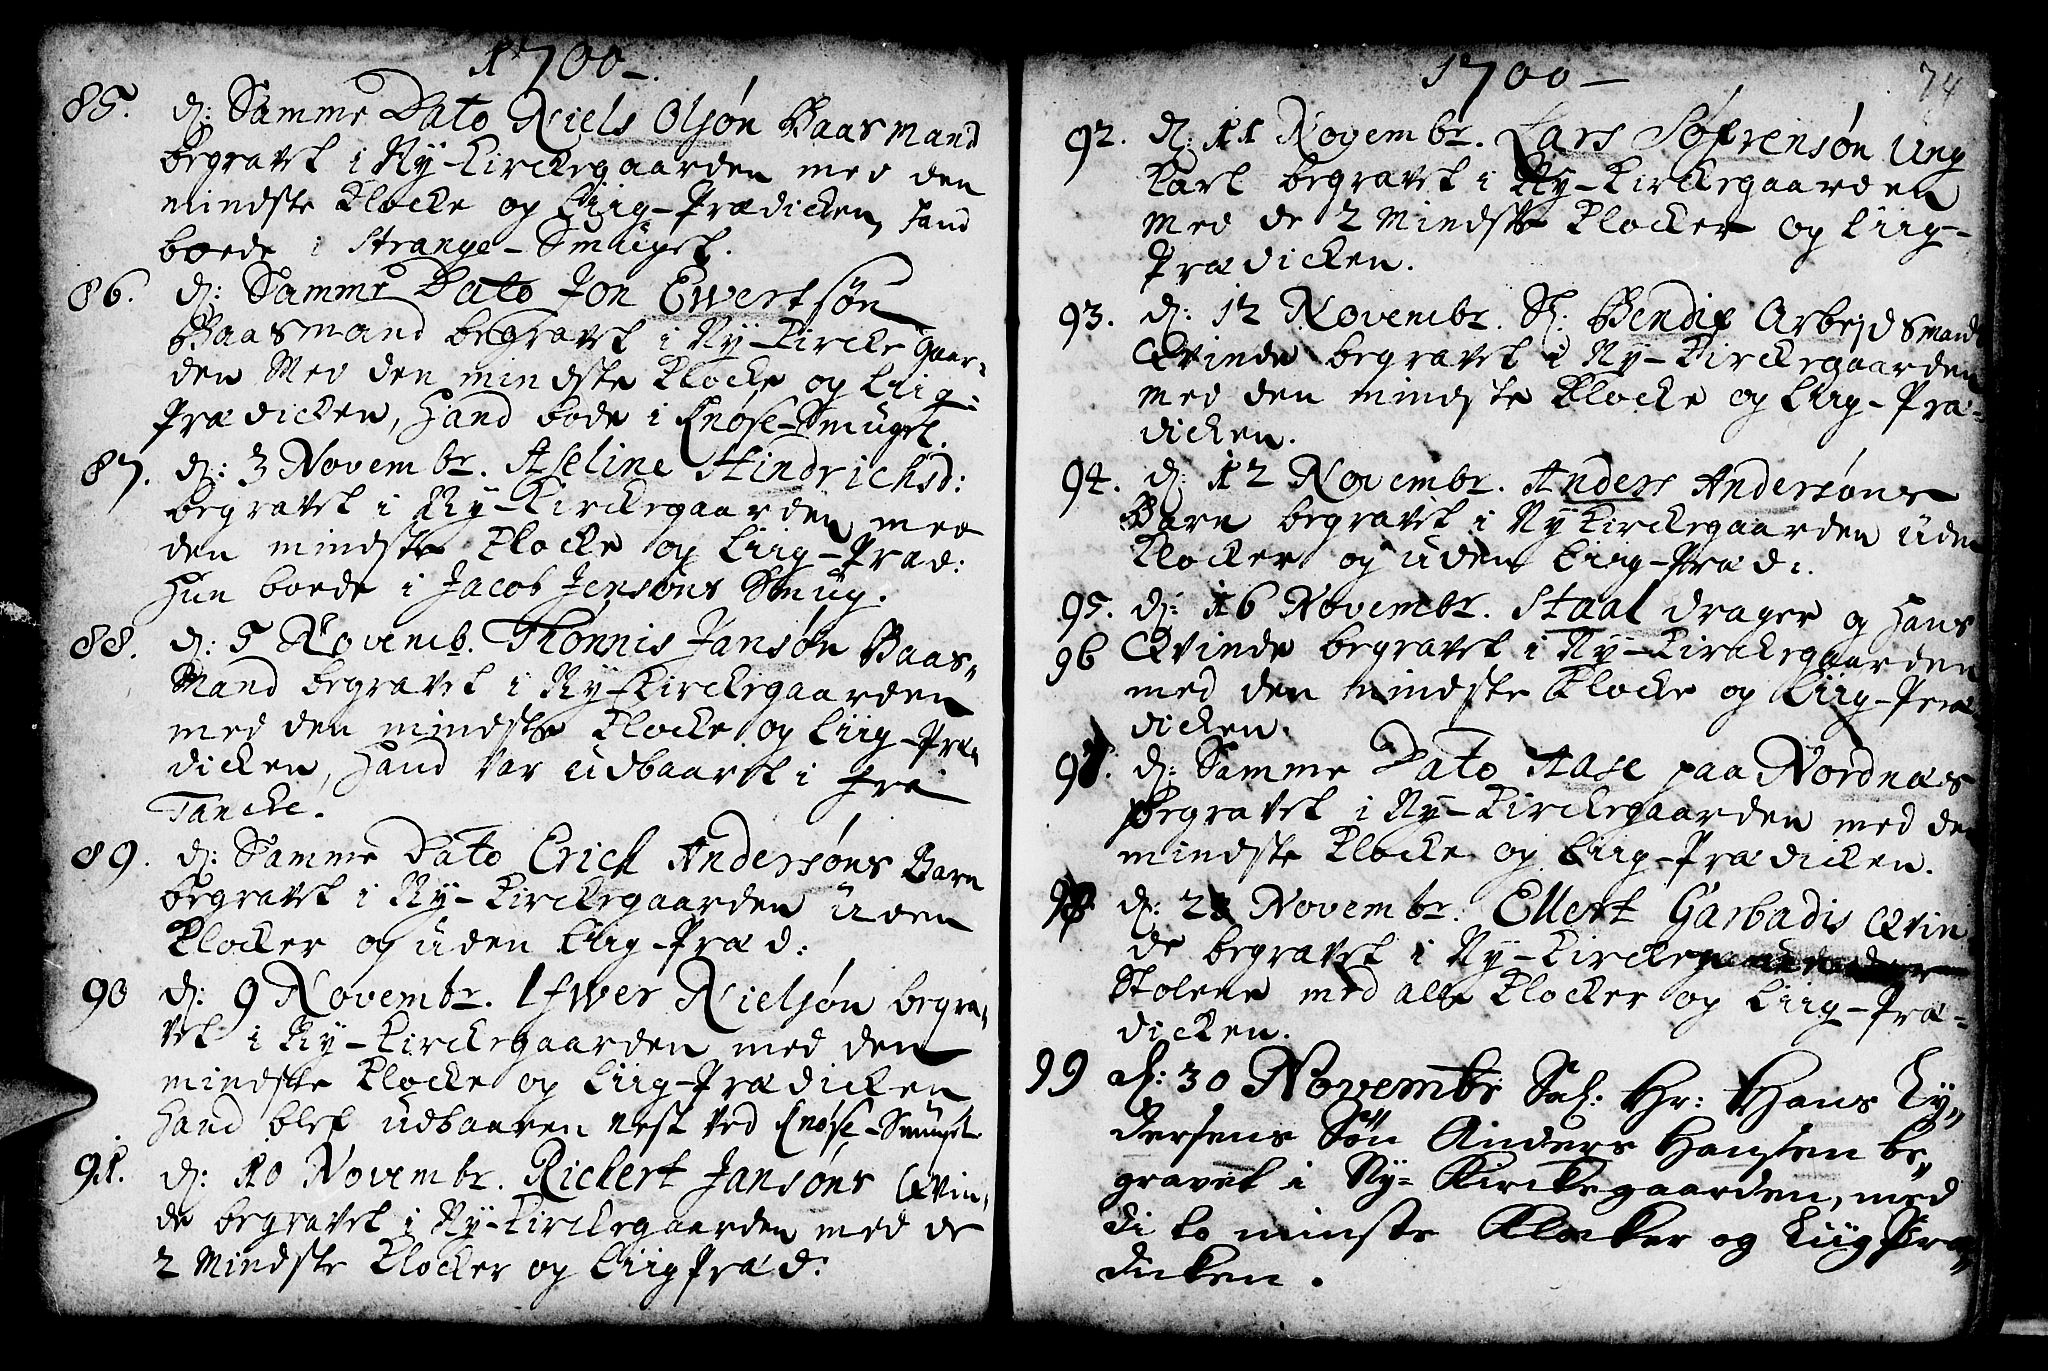 1700 –
85. d: Samme Dato Niels Olsøn Baasmand
begravet i Ny-Kirckegaarden med den
mindste Klocke og Liig-Prædicken, hand
boede i Strange-Smuget.
86. d: Samme Dato Jon Ewertsøn
Baasmand begravet i Ny-Kircke gaar-
den Med den mindste Klocke og Liig-
Prædicken, Hand bode i Knøse-Smuget.
87. d: 3 Novembr. Aseline Hindrichsd:
begravet i Ny-Kirckegaarden med
den mindste Klocke og Liig-Præd:
Hun boede i Jacob Jensøns Smug.
88. d: 5 Novemb. Thonnis Jansøn Baas-
Mand begravet i Ny-Kirckegaarden
med den mindste Klocke og Liig-Præ-
dicken, Hand var udbaaret i frii
Tancke.
89. d: Samme Dato Erich Andersøns Barn
begravet i Ny-Kirckegaarden uden
Klocker og uden Liig-Præd:
90 d: 9 Novembr. Ifwer Nielsøn begra-
vet i Ny-Kirckegaarden med den
mindste Klocke og Liig-Prædicken
Hand blef udbaaren nest ved Knøse-Smuget
91. d: 10 Novembr. Rickert Jansøns Qvin-
de begravet i Ny-Kirckegaarden med de
2 Mindste Klocker og Liig Præd:
1700 –
74
92. d: 11 Novembr. Lars Søfrensøn Ung
Karl begravet i Ny-Kirckegaarden
med de 2 Mindste Klocker og Liig-
Prædicken.
93. d: 12 Novembr. Sl: Bendix Arbejdsmands
Qvinde begravet i Ny-Kirckegaarden
med den mindste Klocke og Liig-Præ-
dicken.
94. d: 12 Novembr. Anders Andersøns
Barn begravet i Ny Kirckegaarden uden
Klocker og uden Liig-Præd:.
95. d: 16 Novembr. Staal drager og Hans
96 Qvinde begravet i Ny-Kirckegaarden
med den mindste Klocke og Liig-Præ-
dicken.
97. d: Samme Dato Aase paa Nordnæs
begravet i Ny-Kirckegaarden med den
mindste Klocke og Liig-Prædicken.
98 d: Novembr. Ellert Garbadis Qvin-
de begravet i Ny-Kircke
Stolene med alle Klocker og Liig-Præ-
dicken.
99 d: 30 Novembr: Sal: Hr: Hans Ly-
dersens Søn Anders Hansen be-
gravet i Ny-Kirckegaarden, med
di to minste Klocker og Liig Præ-
dicken.